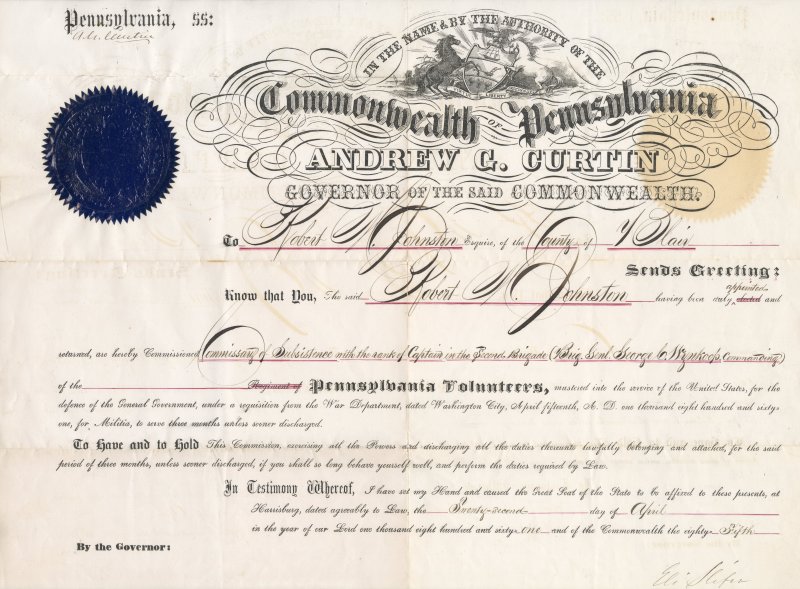 Pennsylvania, ss:
A. G. Curtin
IN THE NAME & BY THE AUTHORITY OF THE
Commonwealth OF Pennsylvania
ANDREW G. CURTIN
GOVERNOR OF THE SAID COMMONWEALTH.
To Robert W. Johnston Esquire, of the County of Blair
Sends Greeting:
Know that You, The said Robert W. Johnston having been duly elected appointed and
returned, are hereby Commissioned Commissary of Subsistence with the rank of Captain in the Second Brigade (Brig. Genl. George C. Wynkoop, Commanding)
of the Regiment of Pennsylvania Volunteers, mustered into the service of the United States, for the
defence of the General Government, under a requisition from the War Department, dated Washington City, April fifteenth, A. D. one thousand eight hundred and sixty-
one, for Militia, to serve three months unless sooner discharged.
To Have and to Hold This Commission, exercising all the Powers and discharging all the duties thereunto lawfully belonging and attached, for the said
period of three months, unless sooner discharged, if you shall so long behave yourself well, and perform the duties required by Law.
In Testimony Whereof, I have set my Hand and caused the Great Seal of the State to be affixed to these presents, at
Harrisburg, dated agreeably to Law, the Twenty-second day of April
in the year of our Lord one thousand eight hundred and sixty-one and of the Commonwealth the eighty-Fifth
By the Governor:
Eli Slifer